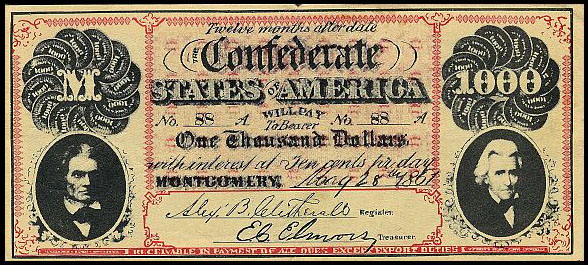 Twelve months after date
THE Confederate
M. 1000
STATES OF AMERICA
WILL PAY
No. 88 A To Bearer No. 88 A
One Thousand Dollars,
with interest at Ten cents per day
MONTGOMERY, May 28th 1861
Alex. B. Clitherall Register.
E. C. Elmore Treasurer.
RECEIVABLE IN PAYMENT OF ALL DUES EXCEPT EXPORT DUTIES